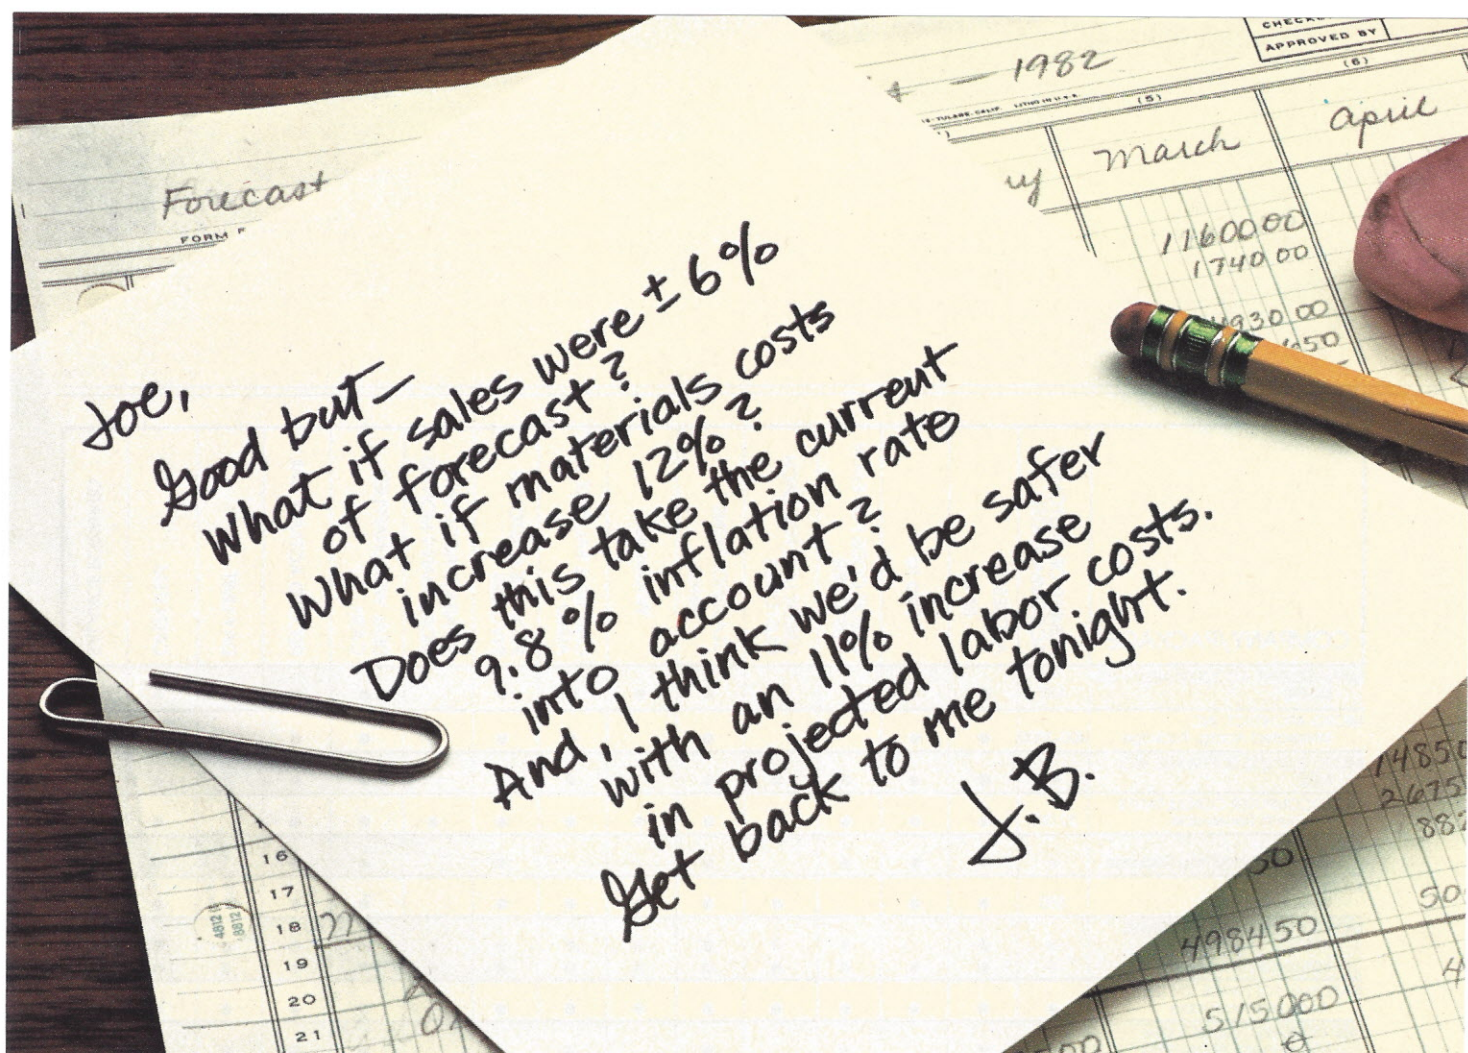 — 1982
CHECK
APPROVED BY
(5)
(6)
March
April
Forecast
FORM
1160000
174000
93000
650
Joe,
Good but—
What if sales were ± 6%
of forecast?
What if materials costs
increase 12%?
Does this take the current
9.8% inflation rate
into account?
And, I think we'd be safer
with an 11% increase
in projected labor costs.
Get back to me tonight.
J.B.
16
17
18
19
20
21
4812
8812
14850
2675
882
50
50
498450
515000
0
00